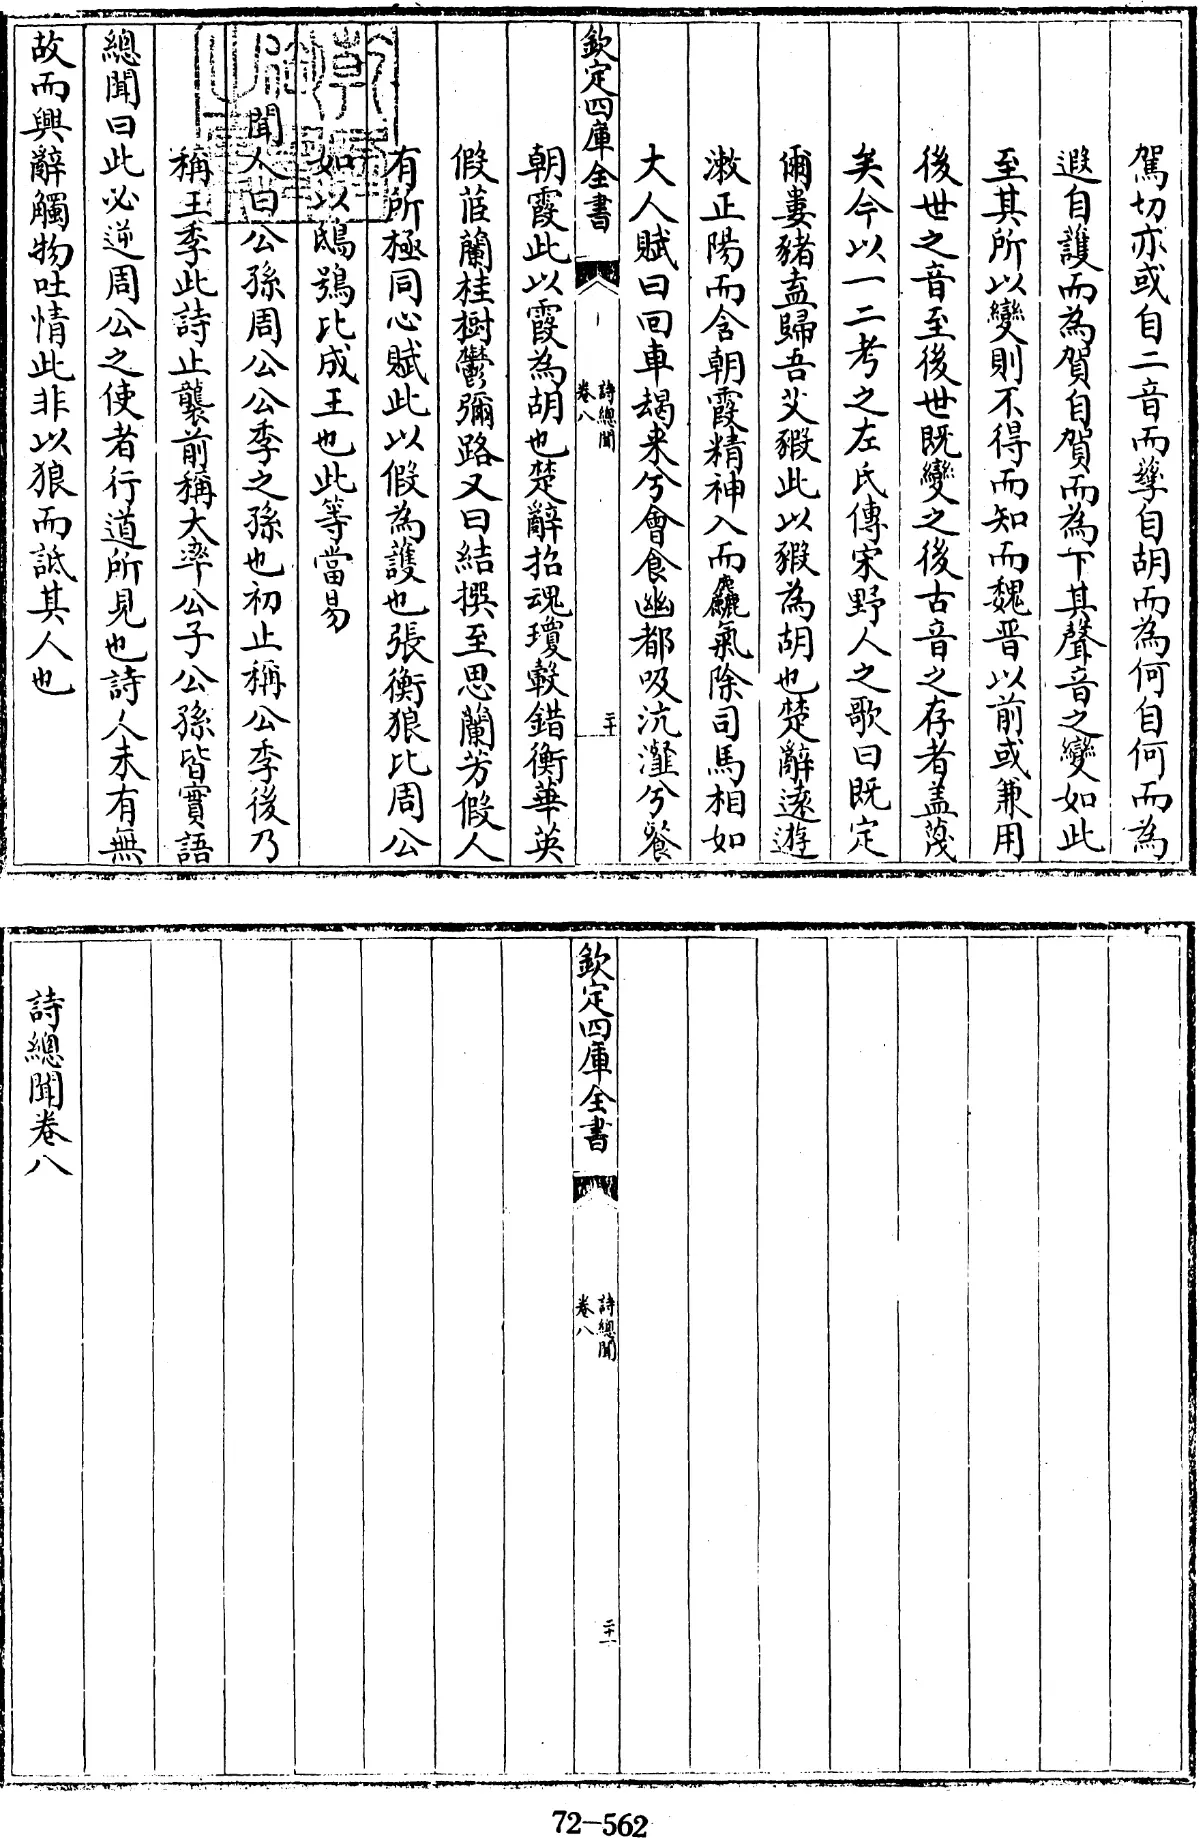 駕切亦或自二音而孳自胡而為何自何而為
遐自護而為賀自賀而為下其聲音之變如此
至其所以變則不得而知而魏晋以前或兼用
後世之音至後世既變之後古音之存者盖蔑
矣今以一二考之左氏傳宋野人之歌曰既定
爾婁豬盍歸吾艾豭此以豭為胡也楚辭逺遊
漱正陽而含朝霞精神入而麤氣除司馬相如
大人賦曰回車朅来兮會食幽都吸沆瀣兮餐
欽定四庫全書
詩總聞
卷八
二十
朝霞此以霞為胡也楚辭招魂瓊轂錯衡華英
假茝蘭桂樹鬱彌路又曰結撰至思蘭芳假人
有所極同心賦此以假為護也張衡狼比周公
如以鴟鴞比成王也此等當易
聞人曰公孫周公公季之孫也初止稱公季後乃
稱王季此詩止襲前稱大率公子公孫皆實語
總聞曰此必逆周公之使者行道所見也詩人未有無
故而興辭觸物吐情此非以狼而詆其人也
欽定四庫全書
詩總聞
卷八
二十一
詩總聞卷八
72-562